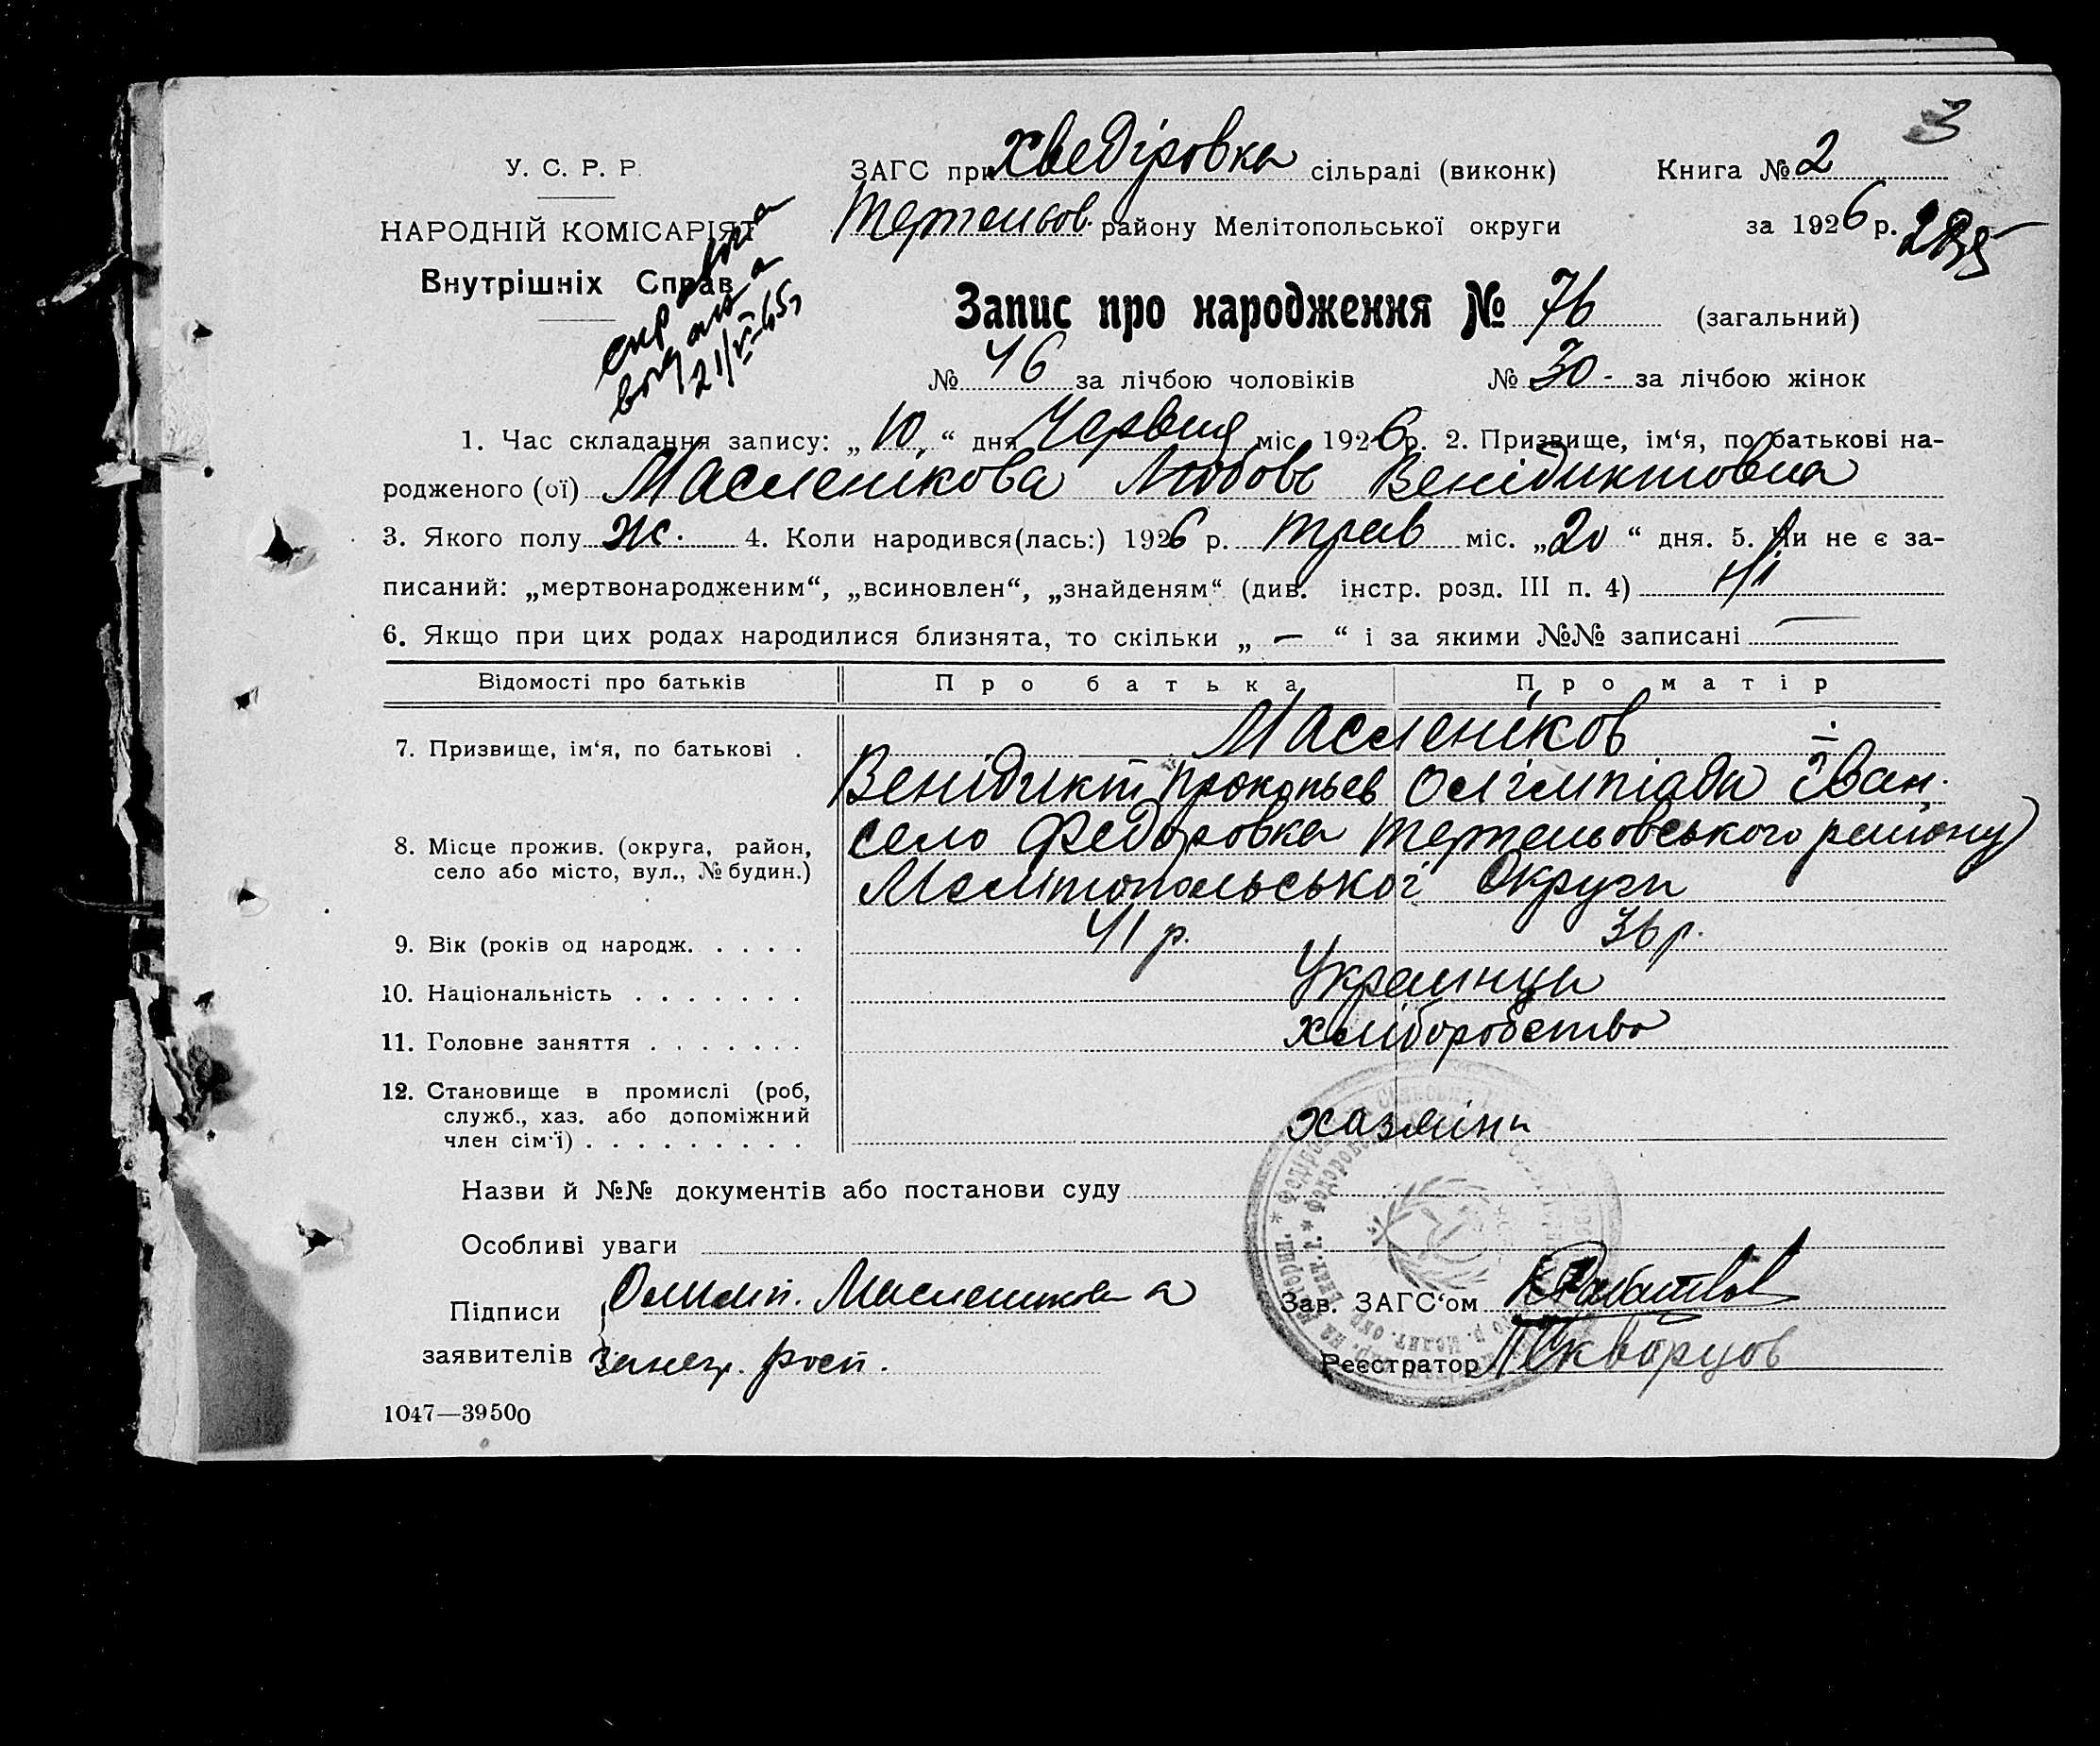 3
У. С. Р. Р.
ЗАГС при Хведіровка сільраді (виконк)
Книга № 2
НАРОДНІЙ КОМІСАРІЯТ
Тертельов. району Мелітопольської округи
за 1926 р.
Внутрішніх Справ
справка
выдана
21/VI-65
Запис про народження № 76 (загальний)
№ 46 за лічбою чоловіків
№ 30 - за лічбою жінок
1. Час складання запису: „10“ дня Червня міс. 1926 р. 2. Призвище, ім‘я, по батькові на-
родженого (ої) Масленікова Любовь Венідиктовна
3. Якого полу ж. 4. Коли народився(лась:) 1926 р. трав міс. „20“ дня. 5. Чи не є за-
писаний: „мертвонародженим“, „всиновлен“, „знайденям“ (див. інстр. розд. III п. 4) Ні
6. Якщо при цих родах народилися близнята, то скільки „ — “ і за якими №№ записані —
Відомості про батьків
Про батька
Про матір
7. Призвище, ім‘я, по батькові .
Масленіков
Венідикт Прокопьев
Олімпіада Іван.
8. Місце прожив. (округа, район,
село або місто, вул., № будин.)
село Федоровка Тертельовського району
Мелітопольської Округи
9. Вік (років од народж. . . . .
41 р.
36 р.
10. Національність . . . . . . .
Украинци
11. Головне заняття . . . . . . .
хліборобство
12. Становище в промислі (роб,
служб., хаз. або допоміжний
член сім‘ї) . . . . . . . . .
хазяіни
Назви й №№ документів або постанови суду
Особливі уваги
Підписи
заявителів
Олимп. Масленикова
Зав. ЗАГС‘ом
Реєстратор Скворцов
1047—39500